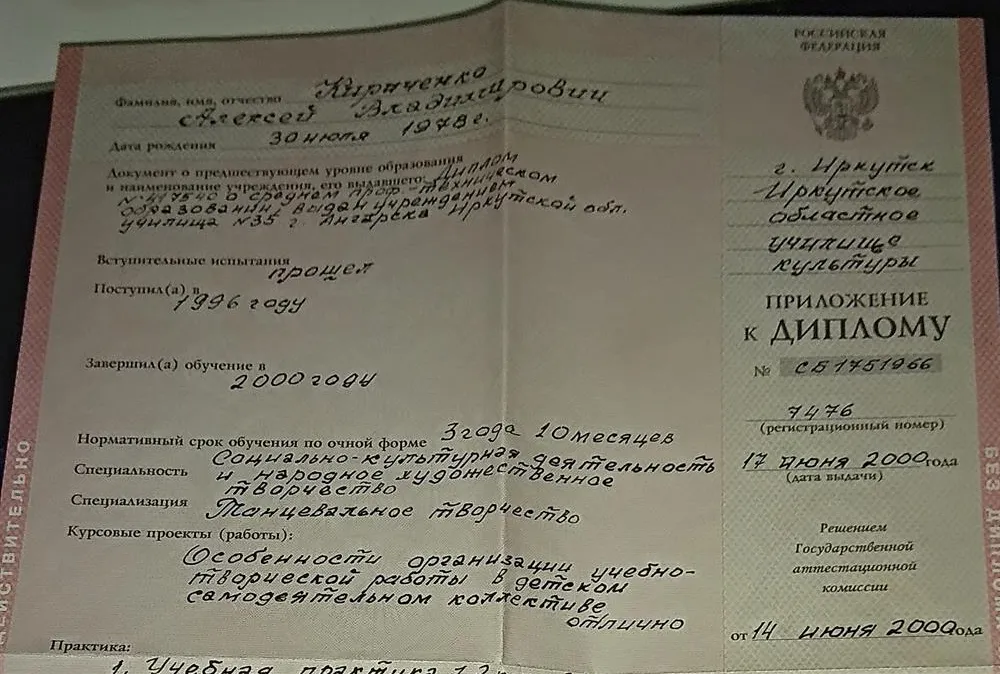 Кириченко
Фамилия, имя, отчество
Алексей Владимирович
Дата рождения 30 июля 1978 г.
Документ о предшествующем уровне образования
и наименование учреждения, его выдавшего: Диплом
№ 417540 о среднем проф.-техническом
образовании, выдан учреждением
училища №35 г. Ангарска Иркутской обл.
Вступительные испытания прошел
Поступил(а) в 1996 году
Завершил(а) обучение в 2000 году
Нормативный срок обучения по очной форме 3 года 10 месяцев
Специальность Социально-культурная деятельность
и народное художественное
творчество
Специализация Танцевальное творчество
Курсовые проекты (работы):
Особенности организации учебно-
творческой работы в детском
самодеятельном коллективе
отлично
Практика:
1. Учебная практика
РОССИЙСКАЯ
ФЕДЕРАЦИЯ
г. Иркутск
Иркутское
областное
училище
культуры
ПРИЛОЖЕНИЕ
К ДИПЛОМУ
№ СБ 1751966
7476
(регистрационный номер)
17 июня 2000 года
(дата выдачи)
Решением
Государственной
аттестационной
комиссии
от 14 июня 2000 года
ДЕЙСТВИТЕЛЬНО
БЕЗ ДИПЛОМА